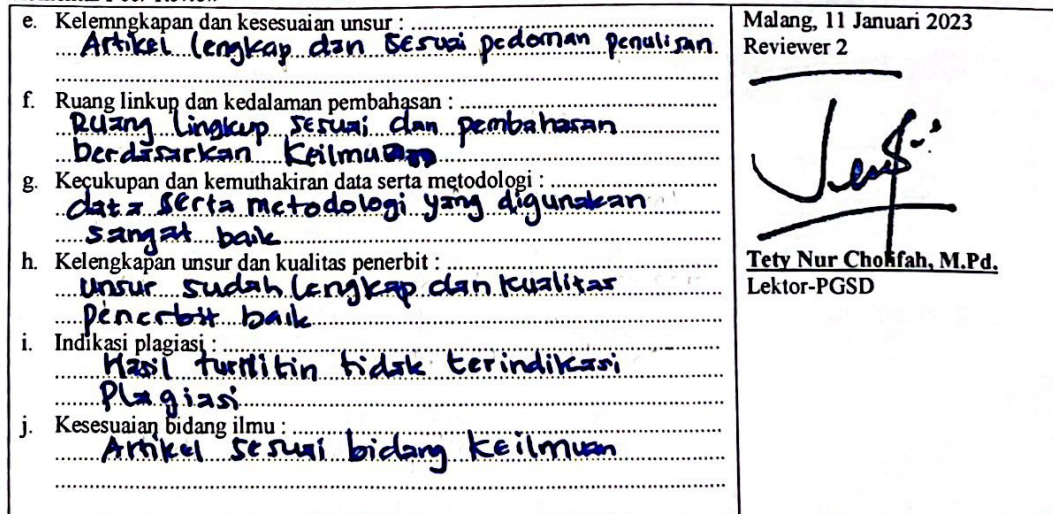 e. Kelemngkapan dan kesesuaian unsur :
Artikel lengkap dan sesuai pedoman penulisan
f. Ruang linkup dan kedalaman pembahasan :
Ruang lingkup sesuai dan pembahasan
berdasarkan keilmuan
g. Kecukupan dan kemuthakiran data serta metodologi :
data serta metodologi yang digunakan
sangat baik
h. Kelengkapan unsur dan kualitas penerbit :
unsur sudah lengkap dan kualitas
penerbit baik
i. Indikasi plagiasi :
Hasil turnitin tidak terindikasi
Plagiasi
j. Kesesuaian bidang ilmu :
Artikel sesuai bidang keilmuan
Malang, 11 Januari 2023
Reviewer 2
Tety Nur Cholifah, M.Pd.
Lektor-PGSD